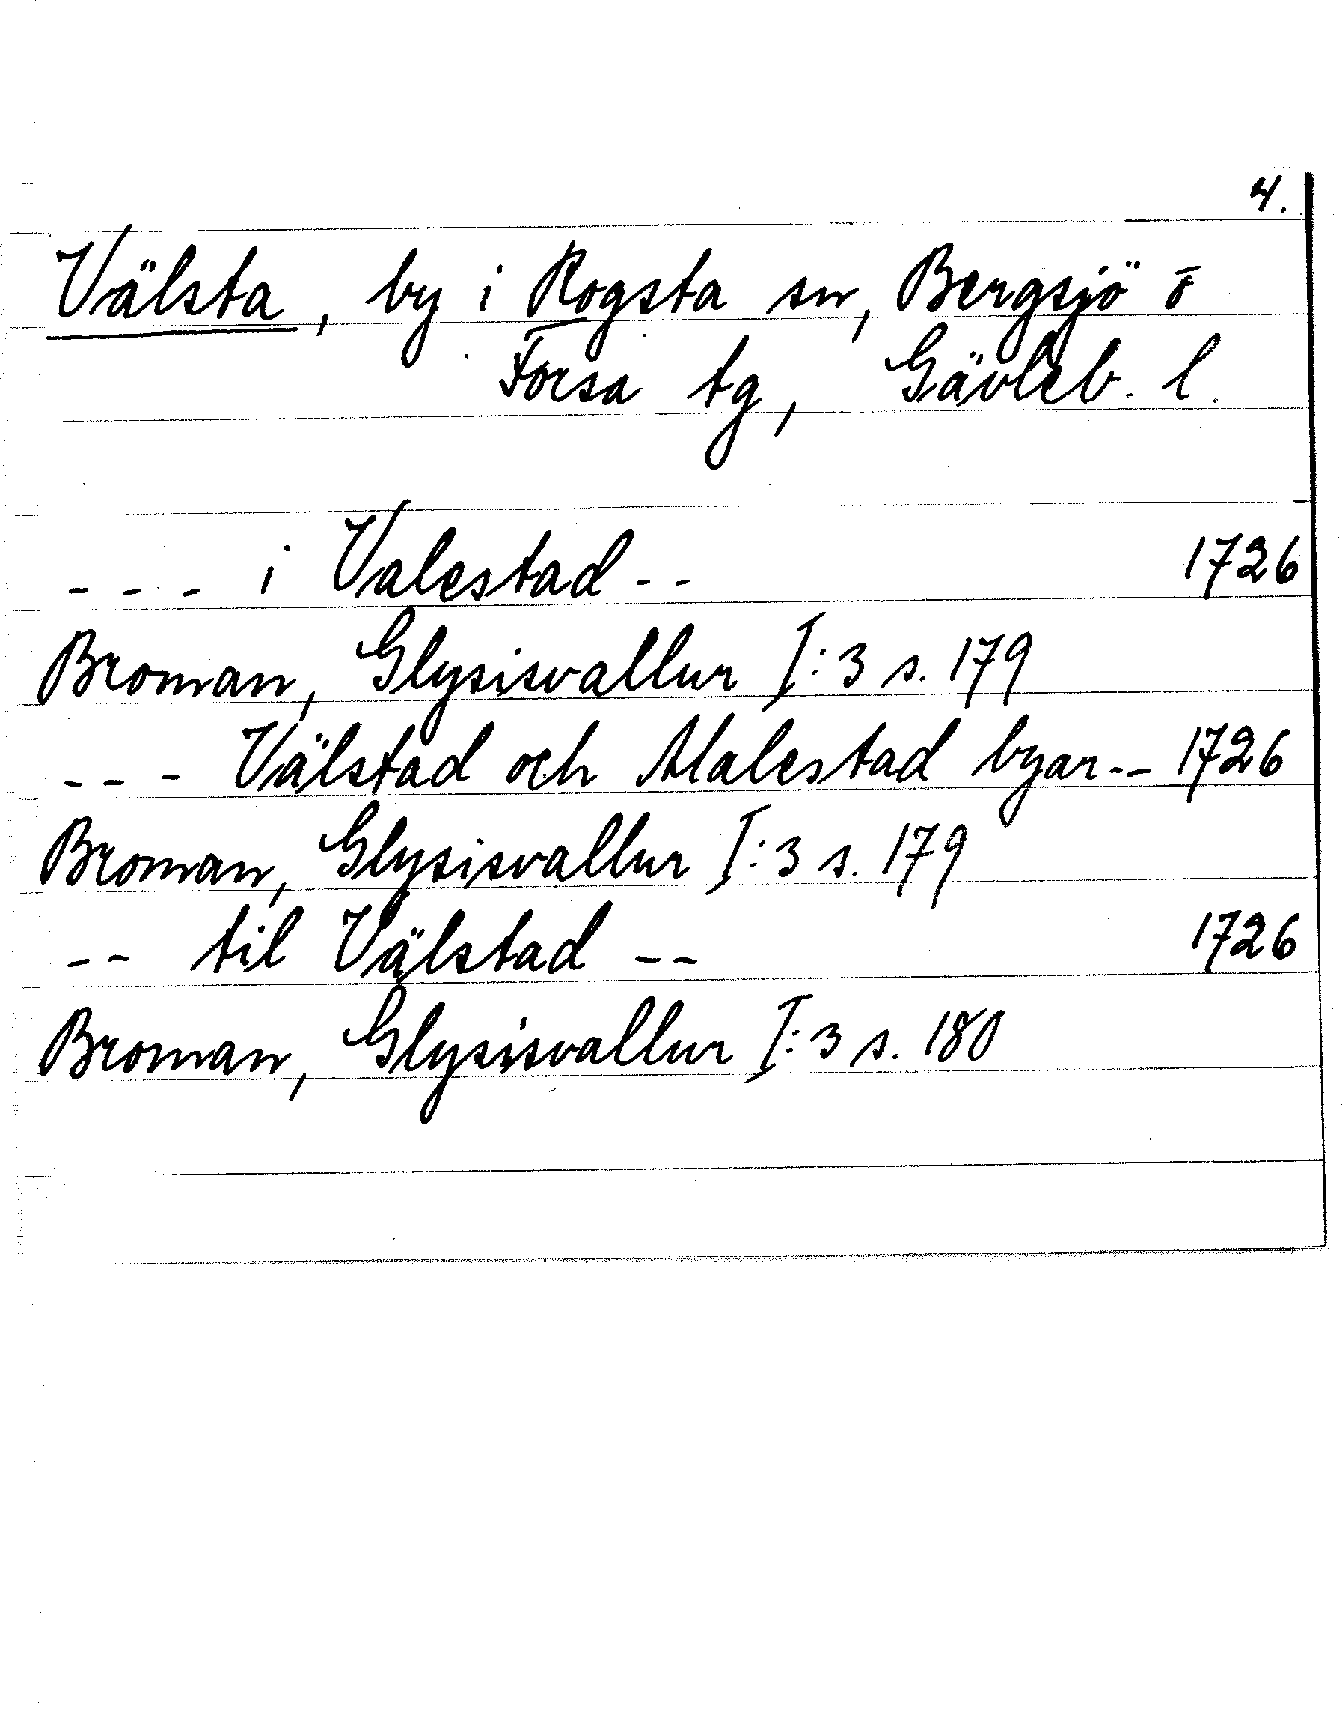 4.
Välsta, by i Rogsta sn, Bergsjö o
Forsa tg, Gävleb. l.
- - - i Valestad - - 1726
Broman, Glysisvallur I:3 s. 179
- - - Välstad och Malestad byar - - 1726
Broman, Glysisvallur I:3 s. 179
- - til Välstad - - 1726
Broman, Glysisvallur I:3 s. 180